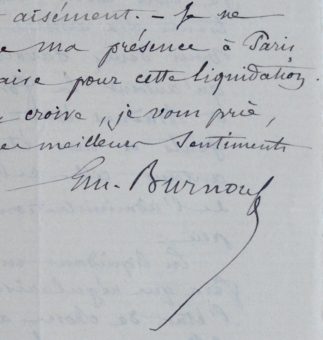 aisément. – Je ne
ma présence à Paris
aire pour cette liquidation.
croire, je vous prie,
meilleurs sentiments
Em. Burnouf